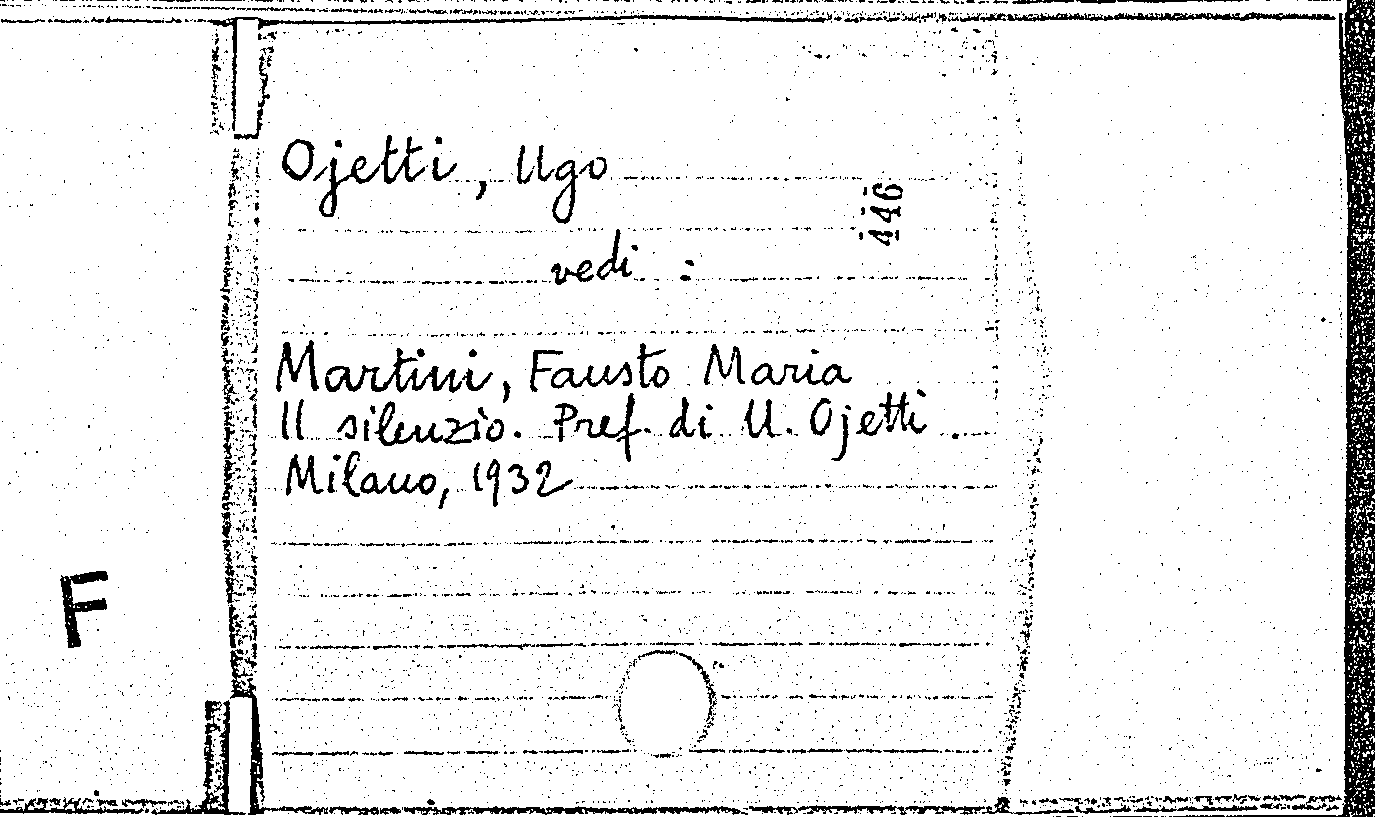 Ojetti, Ugo
446
vedi :
Martini, Fausto Maria
Il silenzio. Pref. di U. Ojetti.
Milano, 1932
F